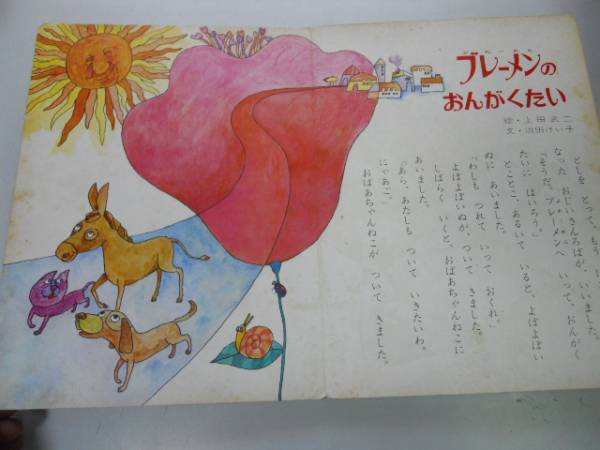 ブレーメンの
おんがくたい
絵・上田武二
文・浜田けい子
としを とって、もう
なった おじいさんろばが、いいました。
「そうだ。ブレーメンへ いって、おんがく
たいに はいろう。」
とことこ あるいて いると、よぼよぼい
ぬに あいました。
「わしも つれて いって おくれ。」
よぼよぼいぬが、ついて きました。
しばらく いくと、おばあちゃんねこに
あいました。
「あら、あたしも ついて いきたいわ。
にゃあご。」
おばあちゃんねこが ついて きました。